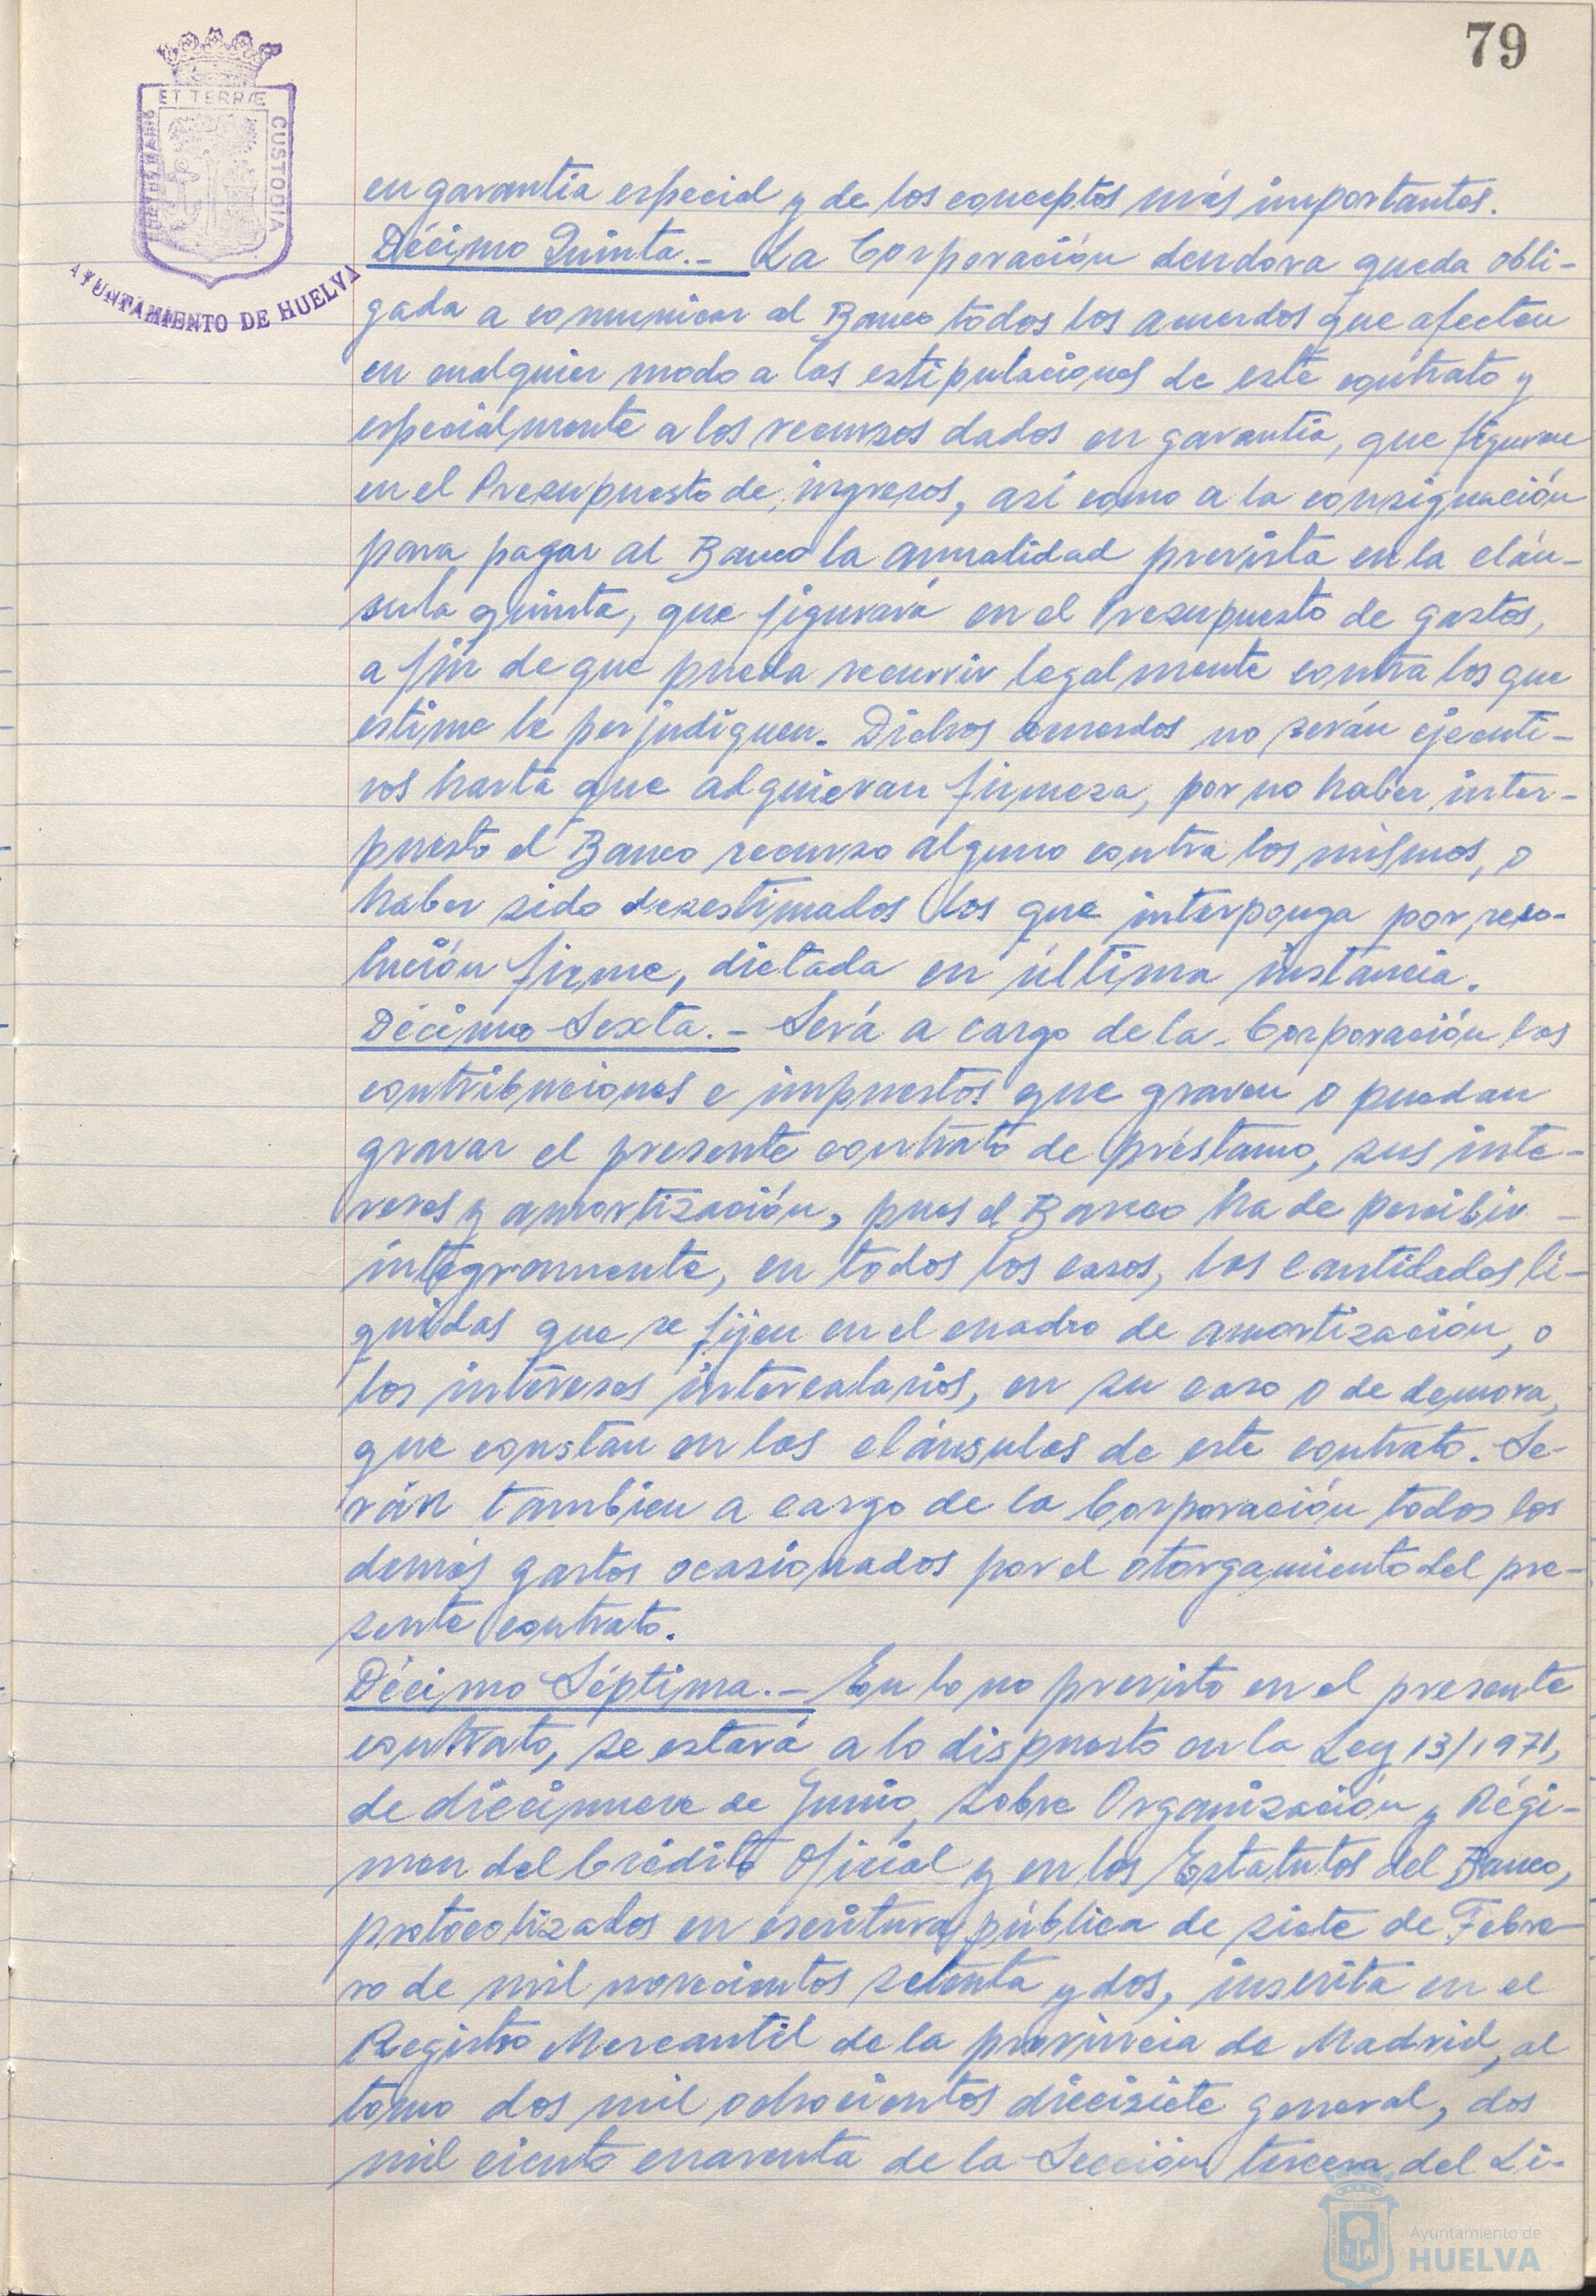 79
ET TERRÆ
CUSTODIA
AYUNTAMIENTO DE HUELVA
en garantía especial y de los conceptos más importantes.
Décimo Quinta.- La Corporación deudora queda obli-
gada a comunicar al Banco todos los acuerdos que afecten
en cualquier modo a las estipulaciones de este contrato y
especialmente a los recursos dados en garantía, que figuran
en el Presupuesto de ingresos, así como a la consignación
para pagar al Banco la anualidad prevista en la cláu-
sula quinta, que figurará en el Presupuesto de gastos,
a fin de que pueda recurrir legalmente contra los que
estime le perjudiquen. Dichos acuerdos no serán ejecuti-
vos hasta que adquieran firmeza, por no haber inter-
puesto el Banco recurso alguno contra los mismos, o
haber sido desestimados los que interponga por reso-
lución firme, dictada en última instancia.
Décimo Sexta.- Será a cargo de la Corporación las
contribuciones e impuestos que graven o puedan
gravar el presente contrato de préstamo, sus inte-
reses y amortización, pues el Banco ha de percibir -
íntegramente, en todos los casos, las cantidades lí-
quidas que se fijen en el cuadro de amortización, o
los intereses intercalarios, en su caso o de demora,
que constan en las cláusulas de este contrato. Se-
rán tambien a cargo de la Corporación todos los
demás gastos ocasionados por el otorgamiento del pre-
sente contrato.
Décimo Séptima.- En lo no previsto en el presente
contrato, se estará a lo dispuesto en la Ley 13/1971,
de diecinueve de Junio, sobre Organización y Régi-
men del Crédito Oficial y en los Estatutos del Banco,
protocolizados en escritura pública de siete de Febre-
ro de mil novecientos setenta y dos, inscrita en el
Registro Mercantil de la provincia de Madrid, al
tomo dos mil ochocientos diecisiete general, dos
mil ciento cuarenta de la Sección tercera del Li-
Ayuntamiento de
HUELVA